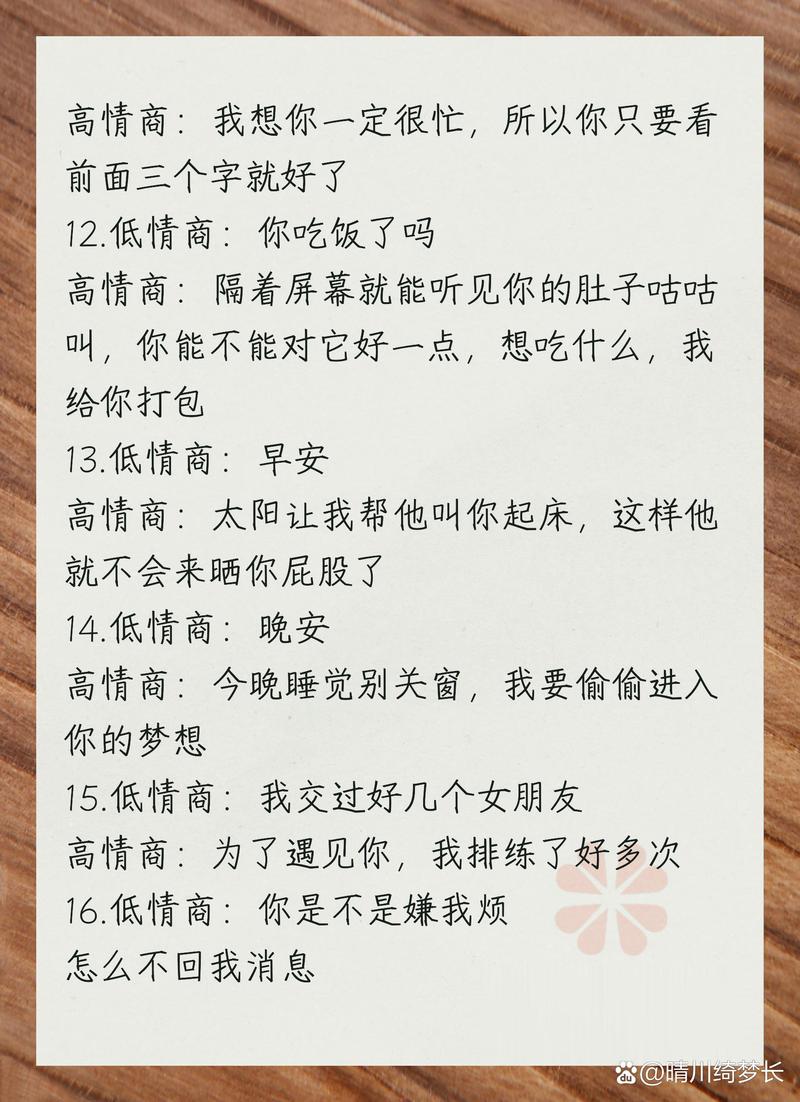 高情商：我想你一定很忙，所以你只要看
前面三个字就好了
12.低情商：你吃饭了吗
高情商：隔着屏幕就能听见你的肚子咕咕
叫，你能不能对它好一点，想吃什么，我
给你打包
13.低情商：早安
高情商：太阳让我帮他叫你起床，这样他
就不会来晒你屁股了
14.低情商：晚安
高情商：今晚睡觉别关窗，我要偷偷进入
你的梦想
15.低情商：我交过好几个女朋友
高情商：为了遇见你，我排练了好多次
16.低情商：你是不是嫌我烦
怎么不回我消息
du @晴川绮梦长